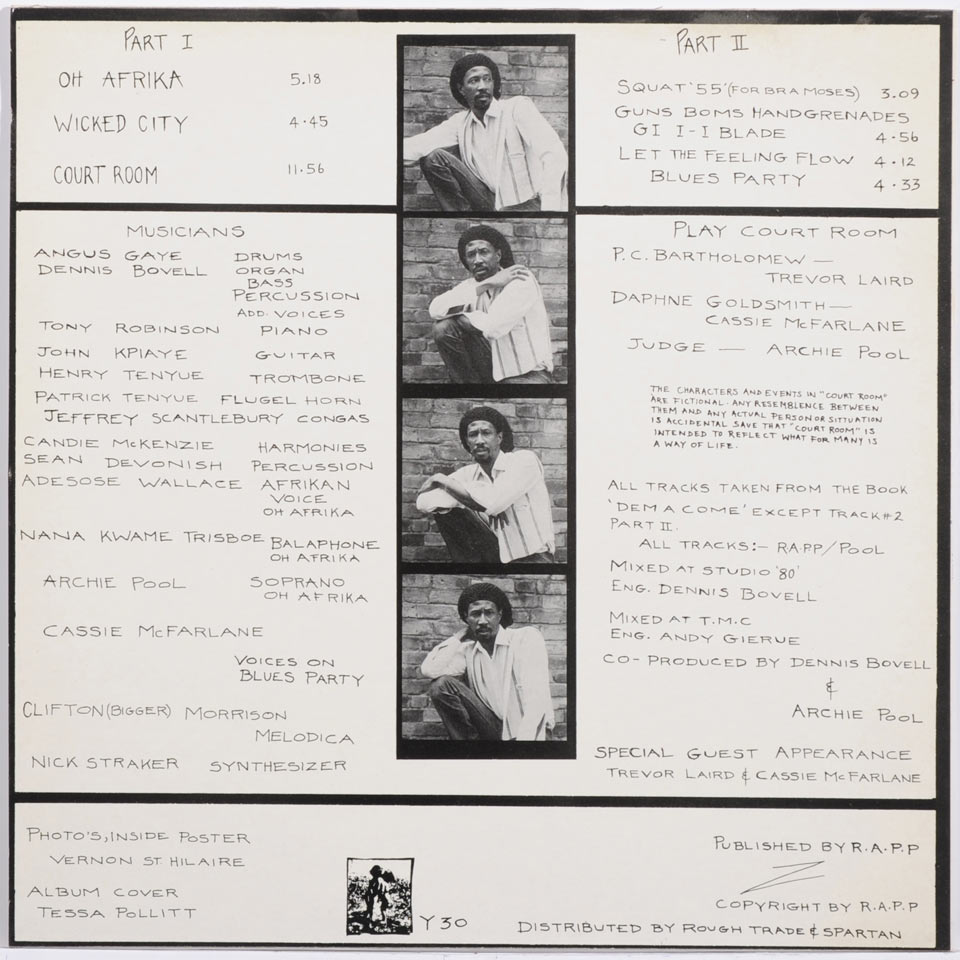 PART I
OH AFRIKA 5.18
WICKED CITY 4.45
COURT ROOM 11.56
PART II
SQUAT '55' (FOR BRA MOSES) 3.09
GUNS BOMS HANDGRENADES
GI I-I BLADE 4.56
LET THE FEELING FLOW 4.12
BLUES PARTY 4.33
MUSICIANS
ANGUS GAYE DRUMS
DENNIS BOVELL ORGAN
BASS
PERCUSSION
ADD. VOICES
TONY ROBINSON PIANO
JOHN KPIAYE GUITAR
HENRY TENYUE TROMBONE
PATRICK TENYUE FLUGEL HORN
JEFFREY SCANTLEBURY CONGAS
CANDIE McKENZIE HARMONIES
SEAN DEVONISH PERCUSSION
ADESOSE WALLACE AFRIKAN
VOICE
OH AFRIKA
NANA KWAME TRISBOE BALAPHONE
OH AFRIKA
ARCHIE POOL SOPRANO
OH AFRIKA
CASSIE McFARLANE
VOICES ON
BLUES PARTY
CLIFTON (BIGGER) MORRISON
MELODICA
NICK STRAKER SYNTHESIZER
PLAY COURT ROOM
P.C. BARTHOLOMEW —
TREVOR LAIRD
DAPHNE GOLDSMITH —
CASSIE McFARLANE
JUDGE — ARCHIE POOL
THE CHARACTERS AND EVENTS IN "COURT ROOM"
ARE FICTIONAL. ANY RESEMBLENCE BETWEEN
THEM AND ANY ACTUAL PERSON OR SITTUATION
IS ACCIDENTAL SAVE THAT "COURT ROOM" IS
INTENDED TO REFLECT WHAT FOR MANY IS
A WAY OF LIFE.
ALL TRACKS TAKEN FROM THE BOOK
'DEM A COME' EXCEPT TRACK #2
PART II.
ALL TRACKS:- RAPP/POOL
MIXED AT STUDIO '80'
ENG. DENNIS BOVELL
MIXED AT T.M.C
ENG. ANDY GIERUE
CO-PRODUCED BY DENNIS BOVELL
&
ARCHIE POOL
SPECIAL GUEST APPEARANCE
TREVOR LAIRD & CASSIE McFARLANE
PHOTO'S, INSIDE POSTER
VERNON ST HILAIRE
ALBUM COVER
TESSA POLLITT
Y 30
PUBLISHED BY R.A.P.P
COPYRIGHT BY R.A.P.P
DISTRIBUTED BY ROUGH TRADE & SPARTAN